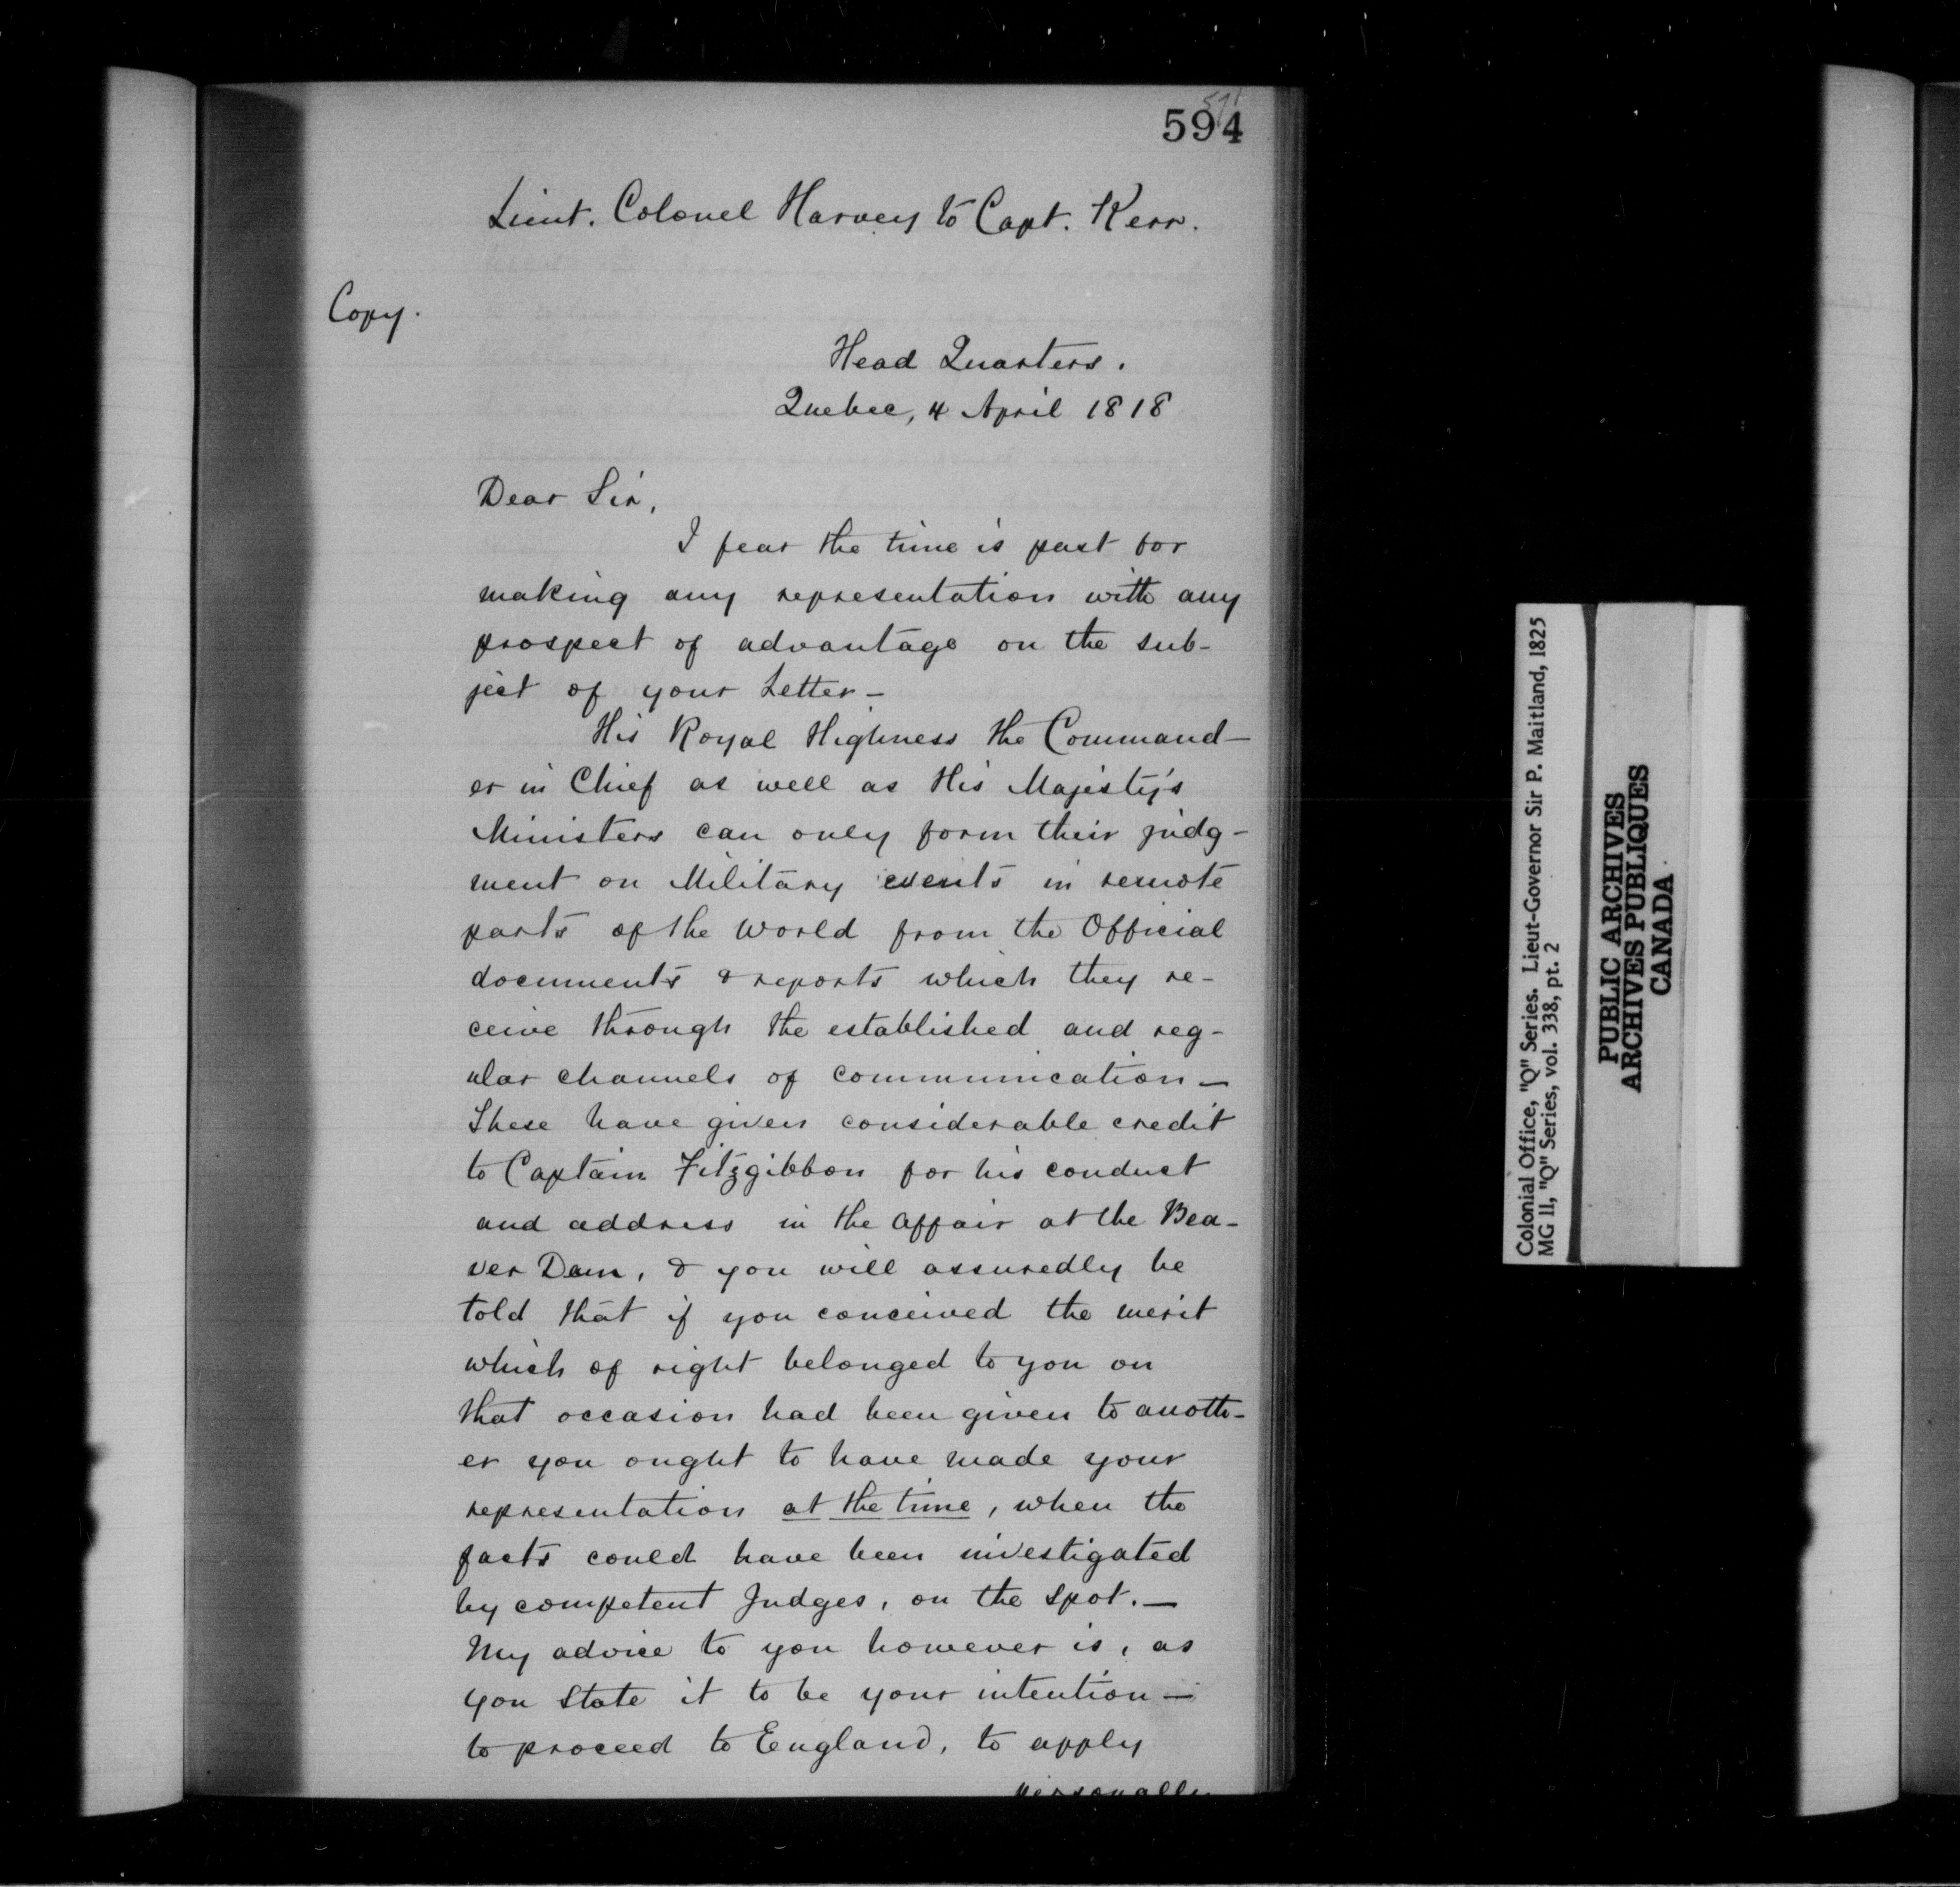 594
Lieut. Colonel Harvey to Capt. Kerr.
Copy.
Head Quarters.
Quebec, 4 April 1818
Dear Sir,
I fear the time is past for
making any representation with any
prospect of advantage on the sub-
ject of your Letter -
His Royal Highness the Command-
er in Chief as well as His Majesty's
Ministers can only form their judg-
ment on Military events in remote
parts of the World from the Official
documents & reports which they re-
ceive through the established and reg-
ular channels of communication -
These have given considerable credit
to Captain Fitzgibbon for his conduct
and address in the affair at the Bea-
ver Dam, & you will assuredly be
told that if you conceived the merit
which of right belonged to you on
that occasion had been given to anoth-
er you ought to have made your
representation at the time, when the
facts could have been investigated
by competent Judges, on the spot. -
My advice to you however is, as
you state it to be your intention -
to proceed to England, to apply
personally
Colonial Office, "Q" Series. Lieut-Governor Sir P. Maitland, 1825
MG 11, "Q" Series, vol. 338, pt. 2
PUBLIC ARCHIVES
ARCHIVES PUBLIQUES
CANADA